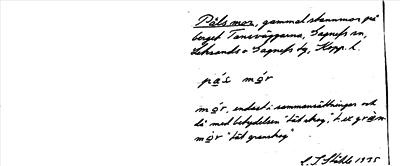 Pålsmor, gammal stammor på
berget Tansväggarna, Sågnefs sn,
Leksands o Gagnefs tg, Kopp. l.
på·s mö·r
mö·r, endast i sammansättningar och
då med betydelsen "tät skog", t.ex. gra·n
mö·r "tät granskog"
1975